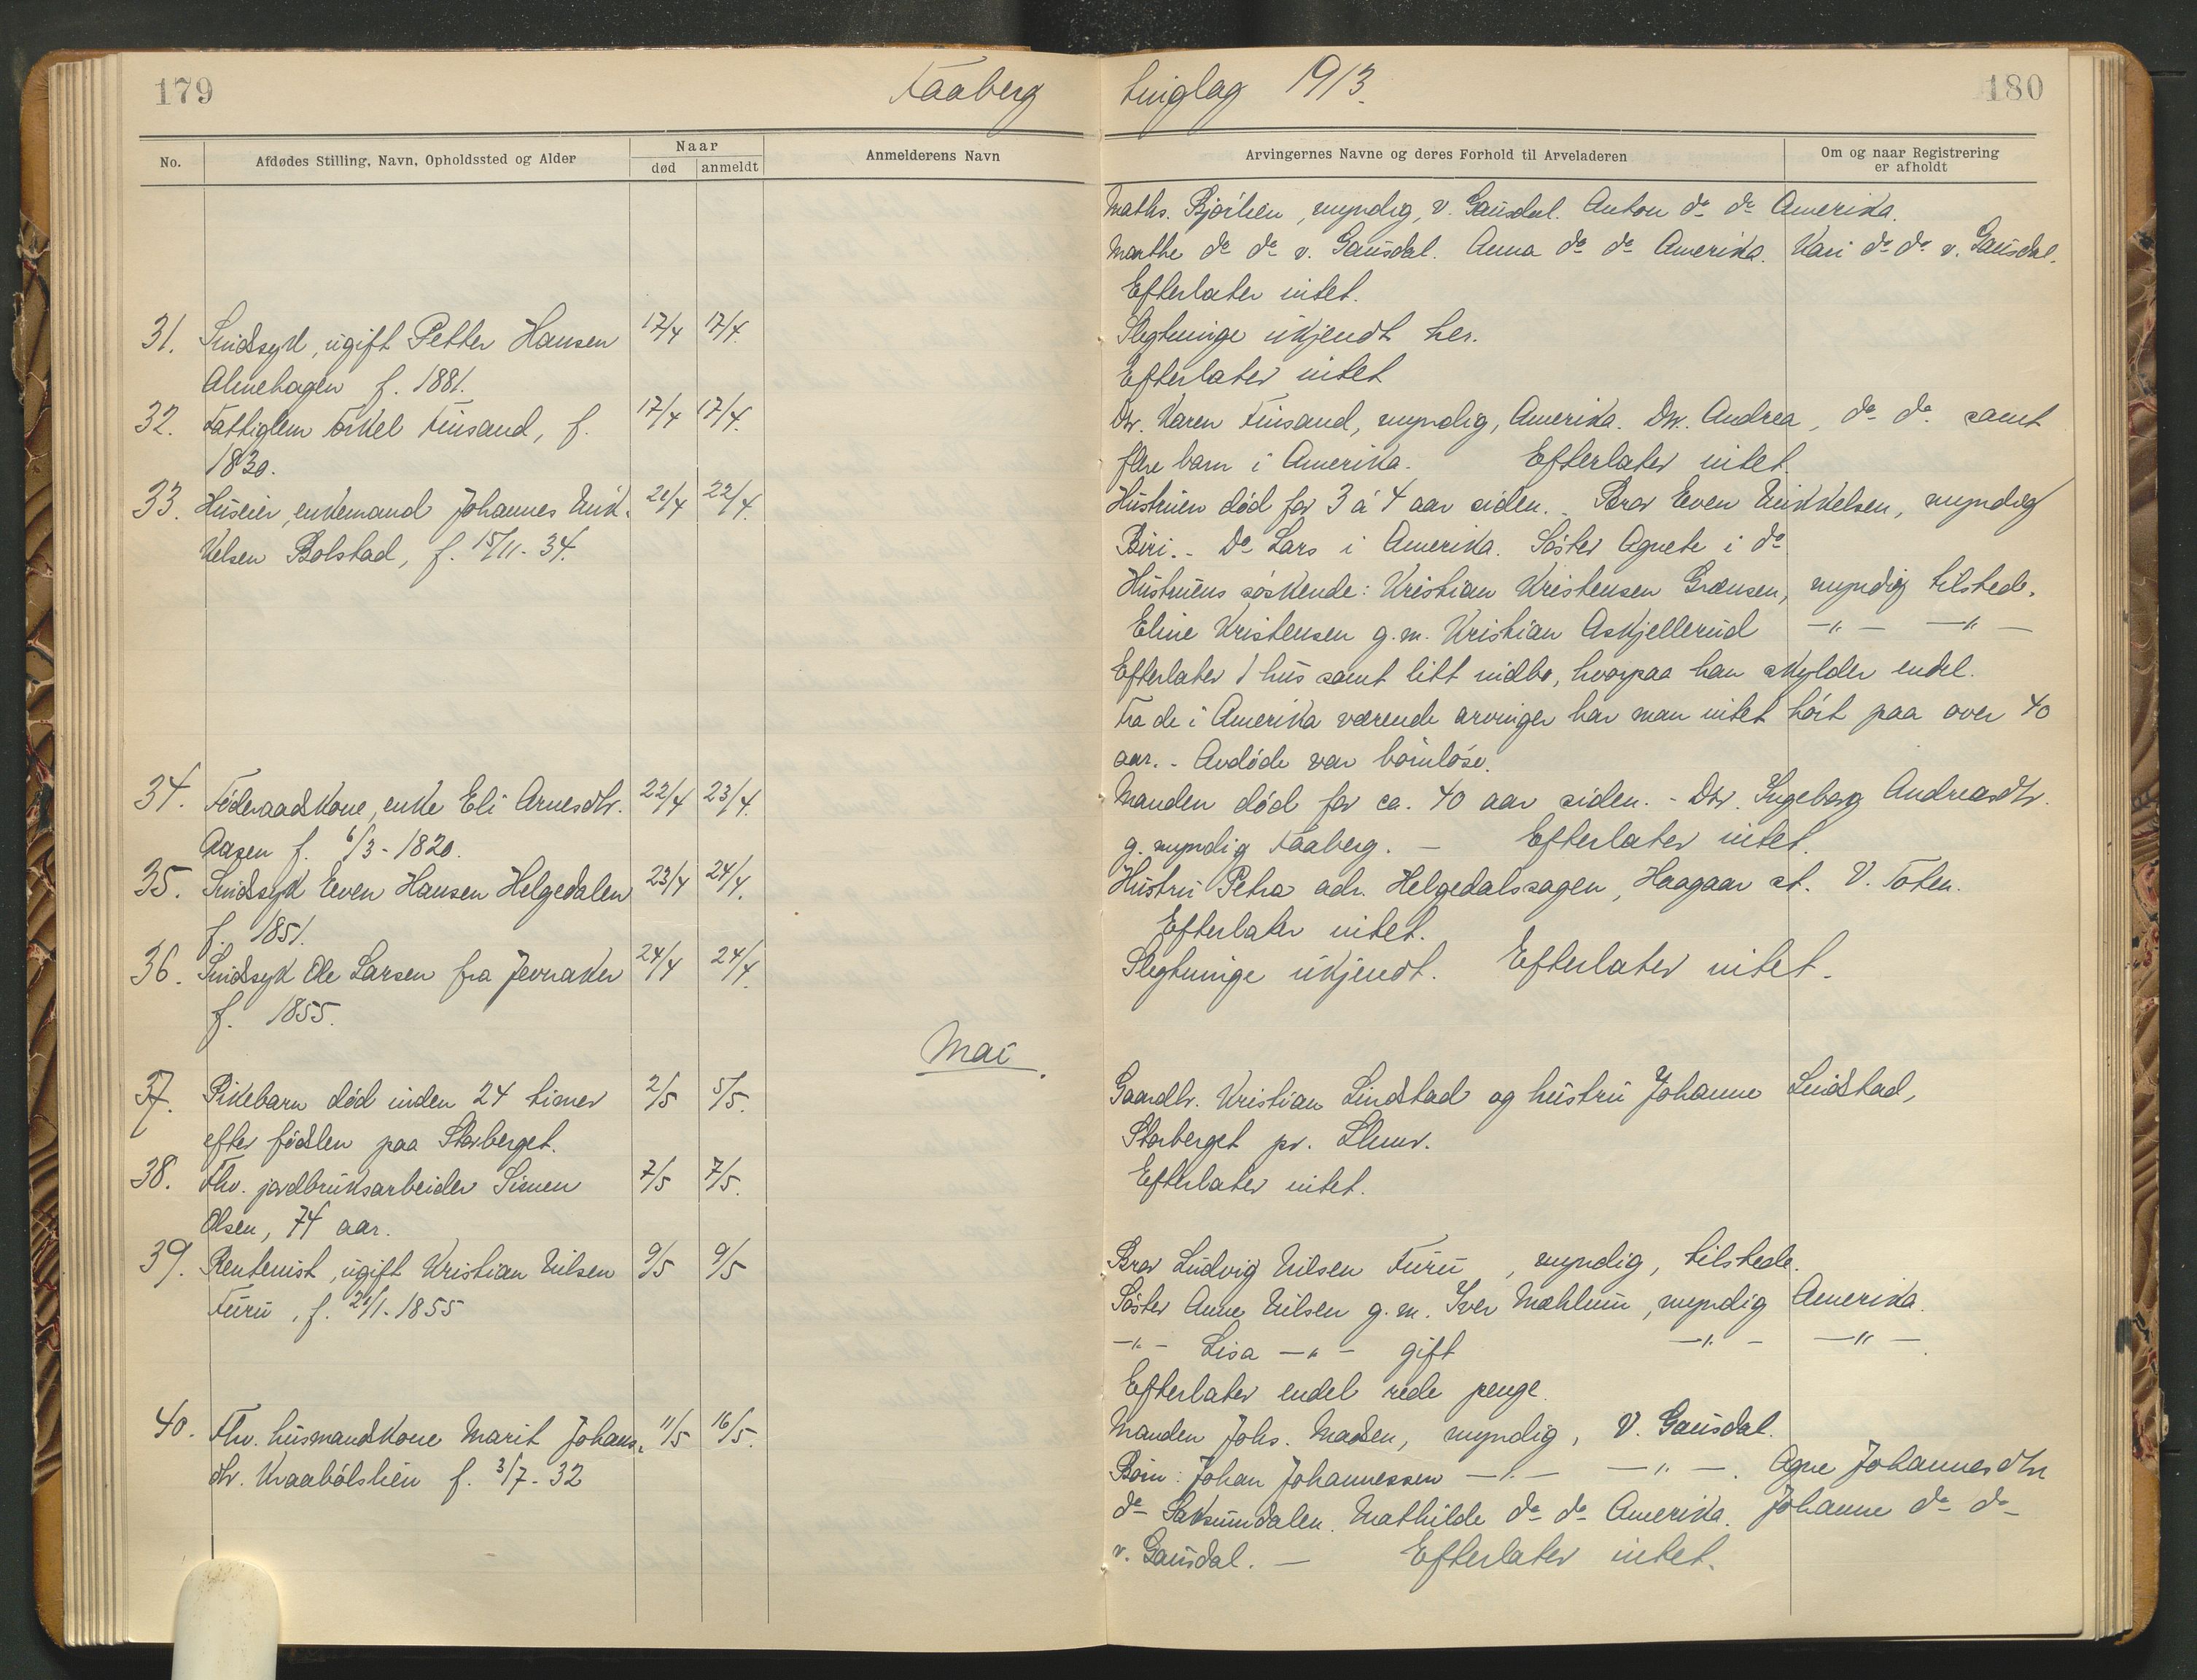 179
Faaberg tinglag 1913.
180
No.
Afdødes Stilling, Navn, Opholdssted og Alder
Naar
død
anmeldt
Anmelderens Navn
Arvingernes Navne og deres Forhold til Arveladeren
Om og naar Registrering
er afholdt
Maths. Bjørlien, myndig, v. Gausdal. Anton do do Amerika.
Marthe do do v. Gausdal. Anna do do Amerika. Kari do do v. Gausdal.
Efterlater intet.
31. Sindssyk, ugift Petter Hansen 17/4 17/4.
Almehagen f. 1881.
Slegtninge ukjendt her.
Efterlater intet
32. Fattiglem Torkel Finsand, f. 17/4 17/4.
1830.
Dtr. Karen Finsand, myndig, Amerika. Dtr. Andrea, do do. samt
flere barn i Amerika. Efterlater intet.
33. Huseier, enkemand Johannes Enk- 21/4 22/4.
kelsen Bolstad, f. 15/11-34.
Hustruen død for 3 á 4 aar siden. - Bror Even Enkkelsen, myndig
Biri. - Do Lars i Amerika. Søster Agnete i do
Hustruens søskende: Kristian Kristensen Grænsen, myndig tilstede.
Eline Kristensen g.m. Kristian Askjellerud -"- -"-
Efterlater 1 hus samt litt indbo, hvorpaa han skylder endel.
Fra de i Amerika værende arvinger har man intet hørt paa over 40
aar. - Avdøde var barnløse.
34. Føderaadskone, enke Eli Arnesdtr. 22/4 23/4.
Aasen f. 6/3-1820.
Manden død for ca. 40 aar siden. - Dtr. Ingeborg Andreasdtr.
g. myndig Faaberg. - Efterlater intet.
35. Sindssyk Even Hansen Helgedalen 23/4 24/4.
f. 1851.
Hustru Petra adr. Helgedalssagen, Haagaar st. V. Toten.
Efterlater intet.
36. Sindssyk Ole Larsen fra Jevnaker 24/4 24/4.
f. 1855.
Slegtninge ukjendt. Efterlater intet.
Mai.
37. Pikebarn død inden 24 timer 2/5 5/5.
efter fødslen paa Storberget.
Gaardbr. Kristian Lindstad og hustru Johanne Lindstad,
Storberget pr. Lhmr.
38. Fhv. jordbruksarbeider Simen 7/5 7/5.
Olsen, 74 aar.
Efterlater intet.
39. Rentenist, ugift Kristian Nilsen 9/5 9/5
Furu, f. 21/1-1855
Bror Ludvig Nilsen Furu, myndig, tilstede.
Søster Anne Nilsen g.m. Iver Mæhlum, myndig Amerika.
-"- Lisa -"- gift -"- -"-.
Efterlater endel rede penge.
40. Fhv. husmandskone Marit Johans- 11/5 16/5.
dtr. Kraabølslien f. 3/7-32
Manden Johs. Madsen, myndig, V. Gausdal.
Børn: Johan Johannessen -"- -"-. Agne Johannesdtr
do Saksumdalen. Mathilde do do Amerika. Johanne do do
v. Gausdal. - Efterlater intet.